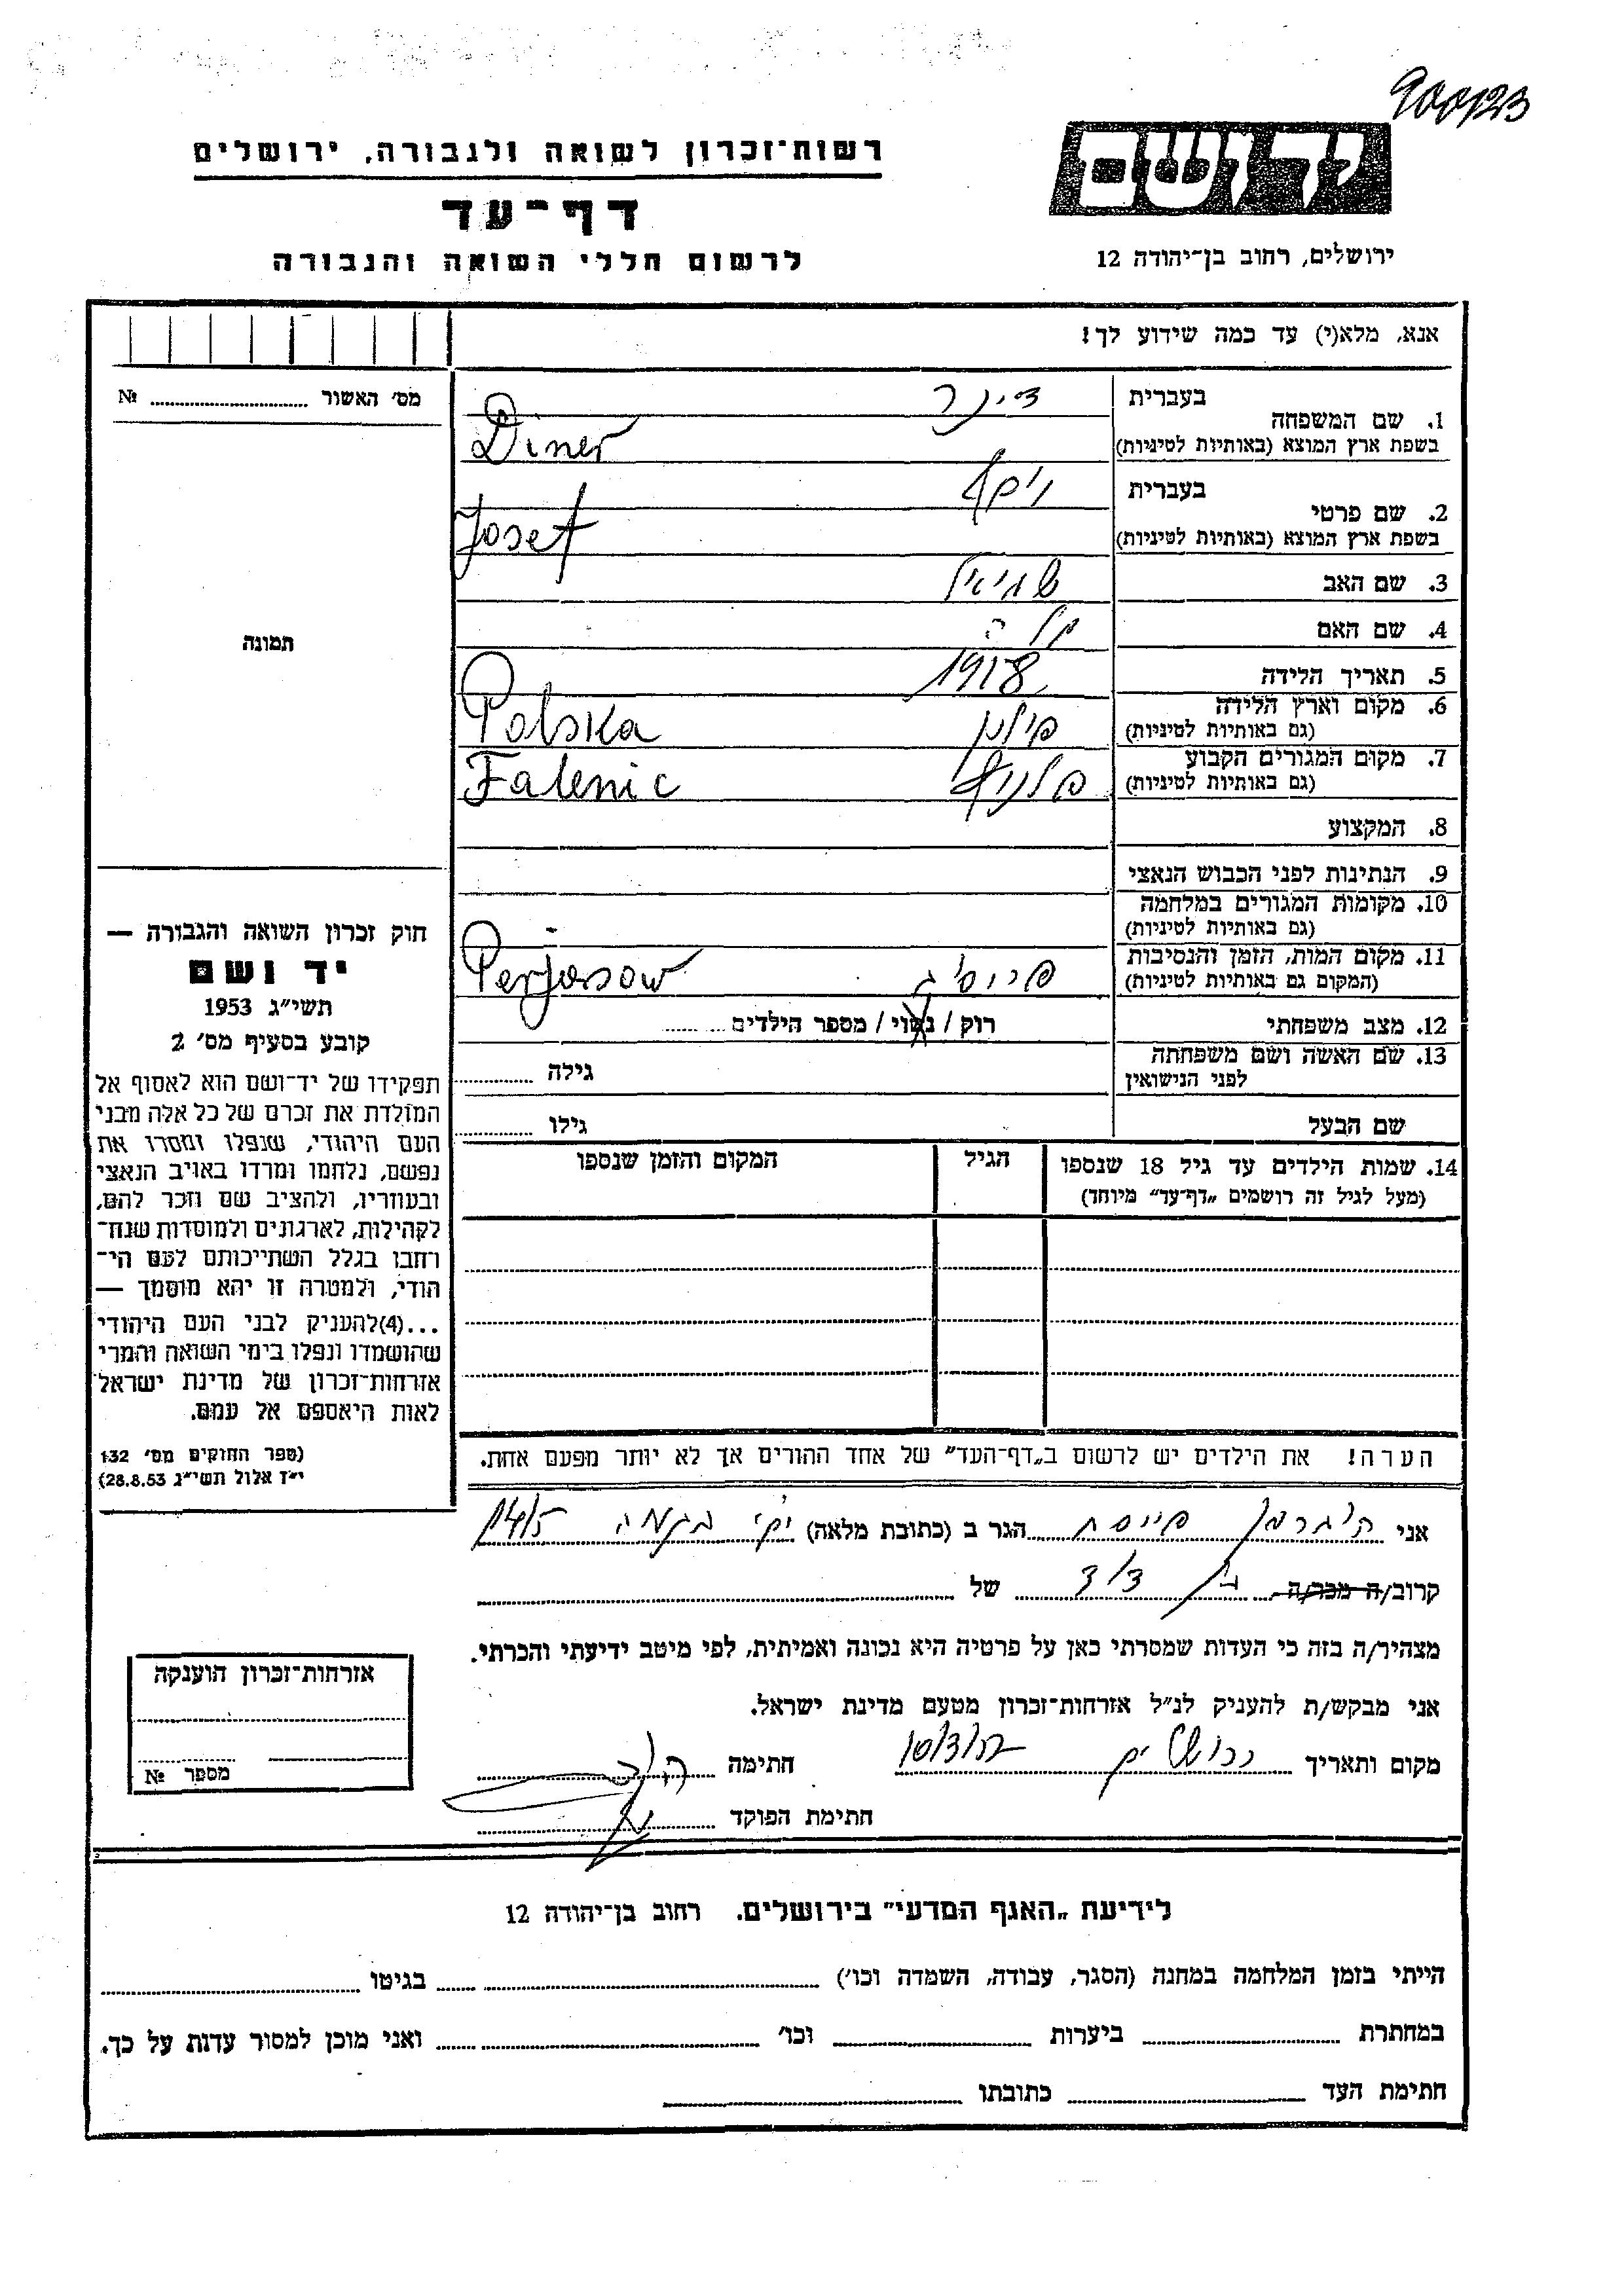 900123
יד ושם
רשות־זכרון לשואה ולגבורה, ירושלים
דף־עד
לרשום חללי השואה והגבורה
ירושלים, רחוב בן־יהודה 12
אנא, מלא(י) עד כמה שידוע לך!
מס׳ האשור № 
תמונה
חוק זכרון השואה והגבורה —
יד ושם
תשי״ג 1953
קובע בסעיף מס׳ 2
תפקידו של יד־ושם הוא לאסוף אל
המולדת את זכרם של כל אלה מבני
העם היהודי, שנפלו ומסרו את
נפשם, נלחמו ומרדו באויב הנאצי
ובעוזריו, ולהציב שם וזכר להם,
לקהילות, לארגונים ולמוסדות שנח־
רחבו בגלל השתייכותם לעם הי־
הודי, ולמטרה זו יהא מוסמך —
...(4)להעניק לבני העם היהודי
שהושמדו ונפלו בימי השואה והמרי
אזרחות־זכרון של מדינת ישראל
לאות היאספם אל עמם.
(ספר החוקים מס׳ 132
י״ז אלול תשי״ג 28.8.53)
בעברית דינר
1. שם המשפחה
בשפת ארץ המוצא (באותיות לטיניות) Diner
בעברית
2. שם פרטי
בשפת ארץ המוצא (באותיות לטיניות) Josef
3. שם האב
4. שם האם
5. תאריך הלידה 1918
6. מקום וארץ הלידה פולין Polska
(גם באותיות לטיניות)
7. מקום המגורים הקבוע Falenic
(גם באותיות לטיניות)
8. המקצוע
9. הנתינות לפני הכבוש הנאצי
10. מקומות המגורים במלחמה
(גם באותיות לטיניות)
11. מקום המות, הזמן והנסיבות Perjasow
(המקום גם באותיות לטיניות)
12. מצב משפחתי רוק / נשוי / מספר הילדים
13. שם האשה ושם משפחתה גילה
לפני הנישואין
שם הבעל גילו
14. שמות הילדים עד גיל 18 שנספו הגיל המקום והזמן שנספו
(מעל לגיל זה רושמים „דף־עד״ מיוחד)
הערה! את הילדים יש לרשום ב„דף־העד״ של אחד ההורים אך לא יותר מפעם אחת.
אני הגר ב (כתובת מלאה) 14/5
קרוב/ה מכר/ה בן דוד של
מצהיר/ה בזה כי העדות שמסרתי כאן על פרטיה היא נכונה ואמיתית, לפי מיטב ידיעתי והכרתי.
אני מבקש/ת להעניק לנ״ל אזרחות־זכרון מטעם מדינת ישראל.
מקום ותאריך ירושלים חתימה
חתימת הפוקד
אזרחות־זכרון הוענקה
מספר №
לידיעת „האגף המדעי״ בירושלים. רחוב בן־יהודה 12
הייתי בזמן המלחמה במחנה (הסגר, עבודה, השמדה וכו׳) בגיטו
במחתרת ביערות וכו׳ ואני מוכן למסור עדות על כך.
חתימת העד כתובתו